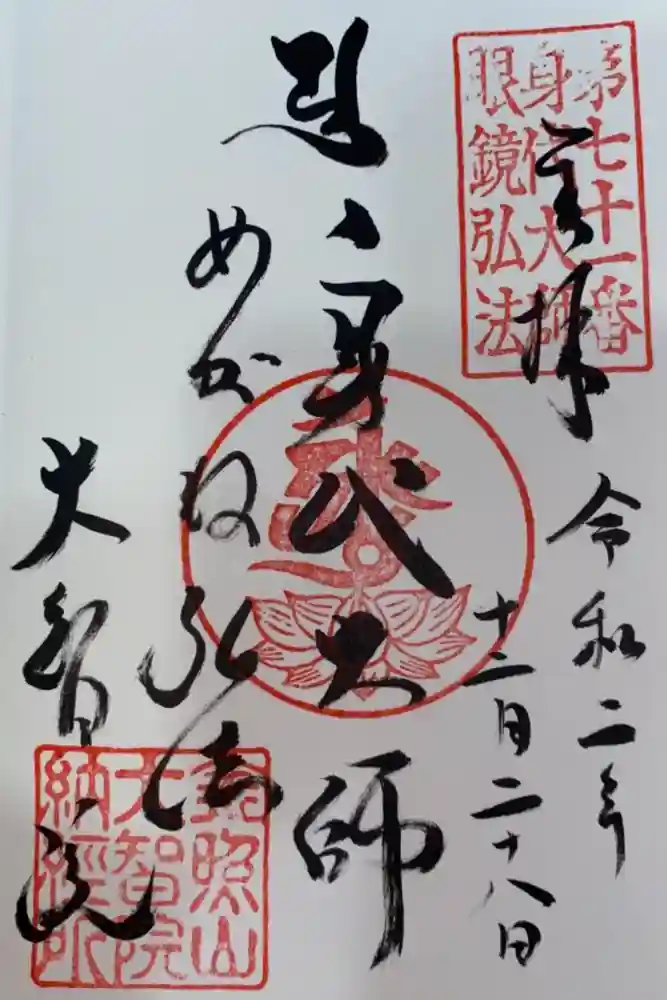 第七十一番
身代大師
眼鏡弘法
奉拝
令和二年
十二月二十八日
身代大師
めがね弘法
大智院
照山
大智院
納経所